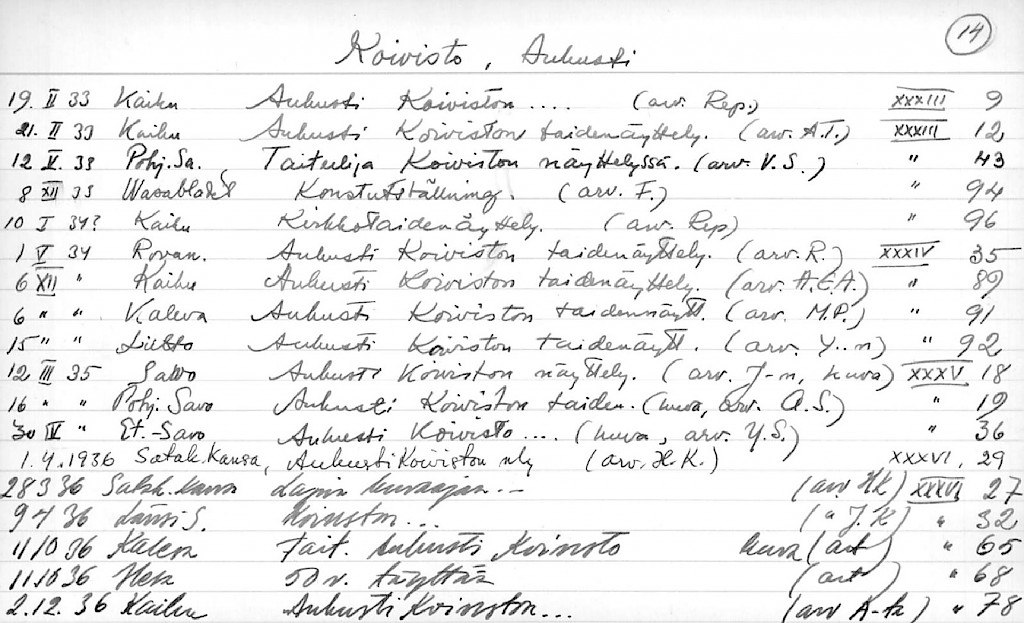 14
Koivisto, Aukusti
19. II 33 Kaiku Aukusti Koiviston .... (arv. Rep.) XXXIII 9
21. II 33 Kaiku Aukusti Koiviston taidenäyttely. (arv. A.T.) XXXIII 12
12 V. 33 Pohj. Sa. Taiteilija Koiviston näyttelyssä. (arv. V.S.) " 43
8 XII 33 Wasabladet Konstutställning. (arv. F.) " 94
10 I 34? Kaiku Kirkkotaidenäyttely. (arv. Rep) " 96
1 V 34 Rovan. Aukusti Koiviston taidenäyttely. (arv. R.) XXXIV 35
6 XII " Kaiku Aukusti Koiviston taidenäyttely. (arv. A.E.A.) " 89
6 " " Kaleva Aukusti Koiviston taidennäytt. (arv. M.P.) " 91
15 " " Liitto Aukusti Koiviston taidenäytt. (arv. Y..n) " 92
12 III 35 Savo Aukusti Koiviston näyttely. (arv. J-n, kuva) XXXV 18
16 " " Pohj. Savo Aukusti Koiviston taiden. (kuva, arv. A.S.) " 19
30 IV " Et.-Savo Aukusti Koivisto .... (kuva, arv. Y.S.) " 36
1.4.1936 Satak. Kansa, Aukusti Koiviston nly (arv. H.K.) XXXVI, 29
28 3 36 Satak. Kansa Lapin kuvaajan .- (arv HK) XXXVI 27
9 4 36 Länsi S. Koiviston ... (" J.K) " 32
11/10 36 Kaleva Tait. Aukusti Koivisto kuva (art) " 65
11.10 36 Hels 50 v. täyttää (art) " 68
2.12. 36 Kaiku Aukusti Koiviston ... (arv A-ta) " 78